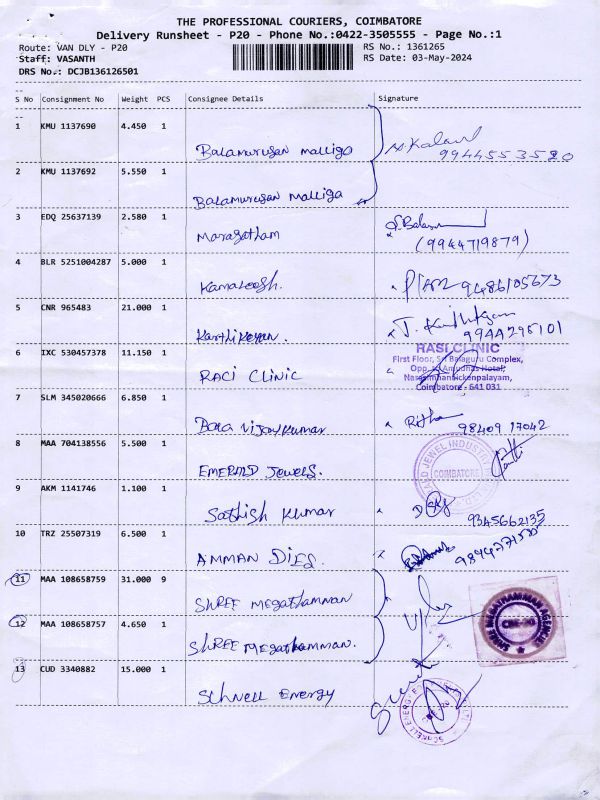 THE PROFESSIONAL COURIERS, COIMBATORE
Delivery Runsheet - P20 - Phone No.:0422-3505555 - Page No.:1
Route: VAN DLY - P20
RS No.: 1361265
Staff: VASANTH
RS Date: 03-May-2024
DRS No.: DCJB136126501
S No Consignment No Weight PCS Consignee Details Signature
1 KMU 1137690 4.450 1
Balamurugan malliga
9944553520
2 KMU 1137692 5.550 1
Balamurugan Malliga
3 EDQ 25637139 2.580 1
Maragatham
(9944719879)
4 BLR 5251004287 5.000 1
Kamaleesh. 9486105673
5 CNR 965483 21.000 1
Karthikeyan. 9944298101
6 IXC 530457378 11.150 1
RACI CLINIC
RASI CLINIC
First Floor, Sri Balaguru Complex,
Narasimhanaickenpalayam,
Coimbatore - 641 031
7 SLM 345020666 6.850 1
Bala vijay kumar 98409 17042
8 MAA 704138556 5.500 1
EMERALD Jewels.
COIMBATORE
9 AKM 1141746 1.100 1
Sathish Kumar
9345662135
10 TRZ 25507319 6.500 1
AMMAN DIES
11 MAA 108658759 31.000 9
SHREE Megathamman
12 MAA 108658757 4.650 1
SHREE Megathamman.
13 CUD 3340882 15.000 1
Schnell Energy